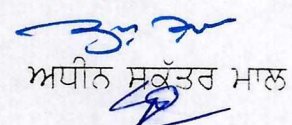 ਅਧੀਨ ਸਕੱਤਰ ਮਾਲ